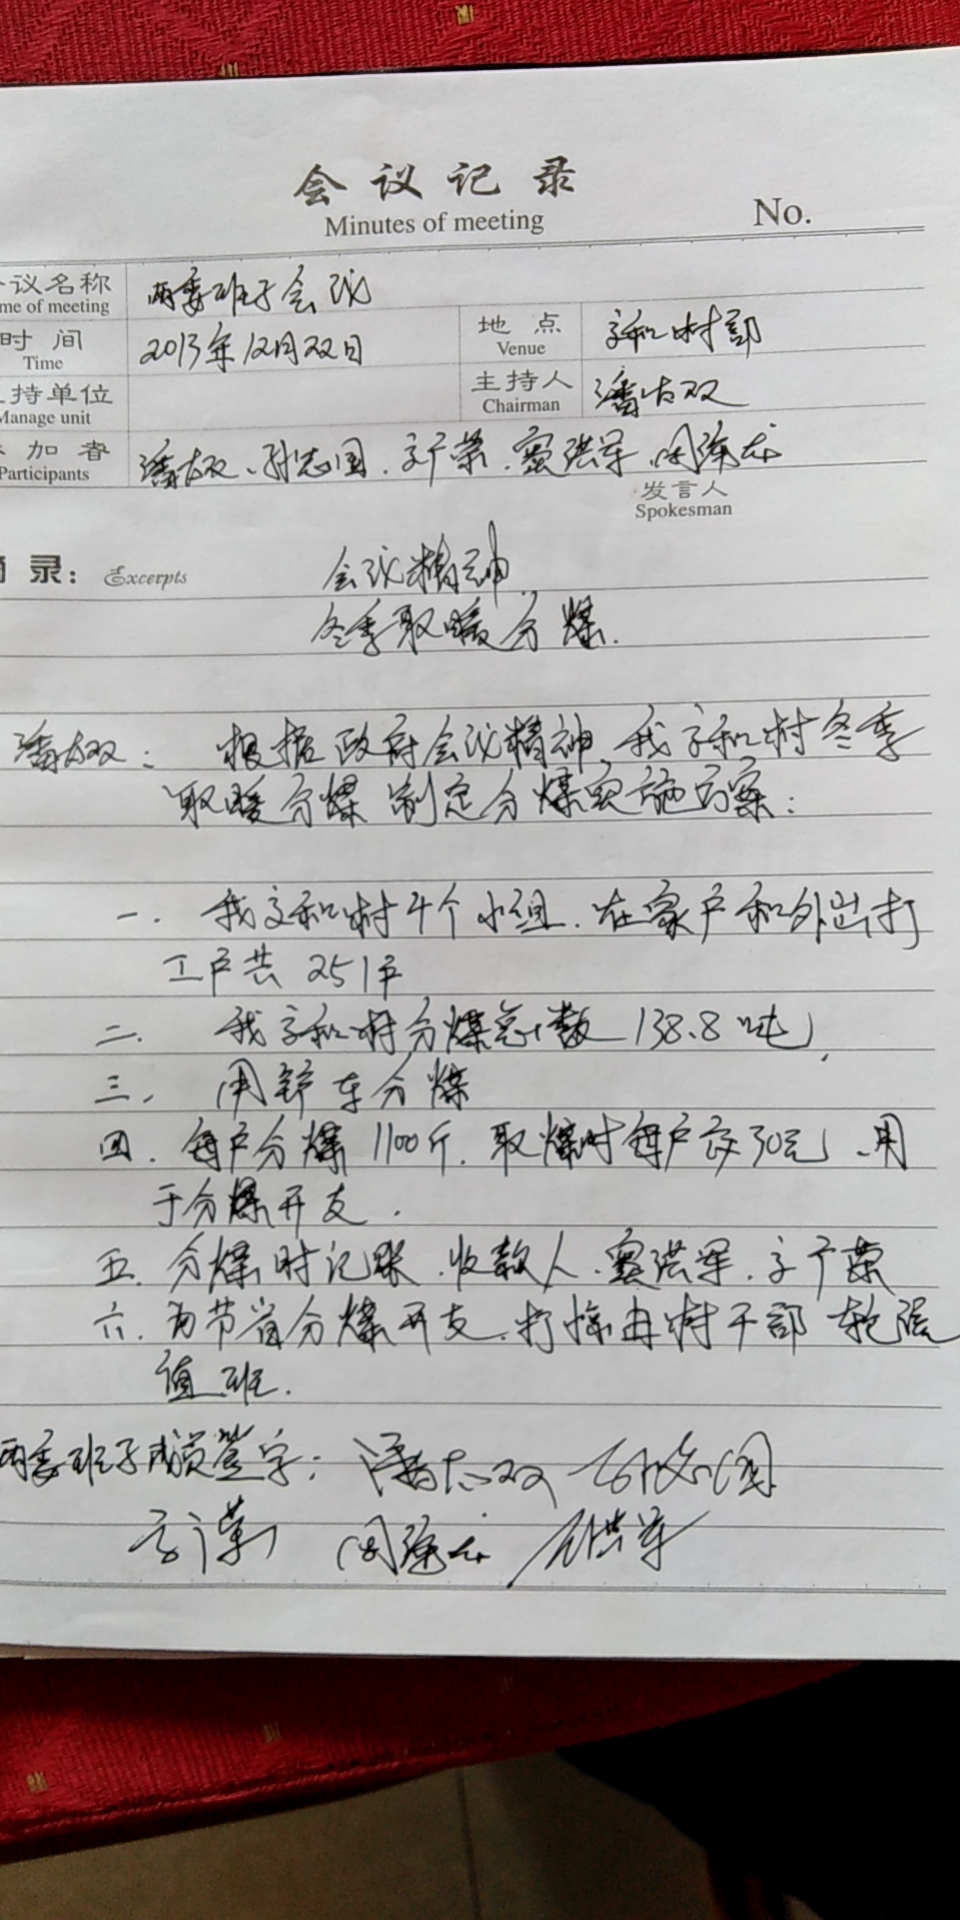 会议记录
Minutes of meeting
No.
议名称 两委班子会议
me of meeting
时间 2013年12月22日 地点 文和村部
Time Venue
持单位 主持人 潘志双
Manage unit Chairman
加者 潘志双、孙志国、文广荣、窦洪军、周海龙
Participants
发言人
Spokesman
录: Excerpts 会议精神
冬季取暖分煤.
潘志双: 根据政府会议精神,我文和村冬季
取暖分煤 制定分煤实施方案:
一. 我文和村4个小组.在家户和外出打
工户共251户
二. 我文和村分煤总计数138.8吨,
三. 用铲车分煤
四. 每户分煤1100斤.取煤时每户交30元、用
于分煤开支.
五. 分煤时记账.收款人.窦洪军.文广荣
六. 为节省分煤开支.打捺由村干部轮流
值班.
两委班子成员签字: 潘志双 孙志国
文广荣 周海龙 窦洪军